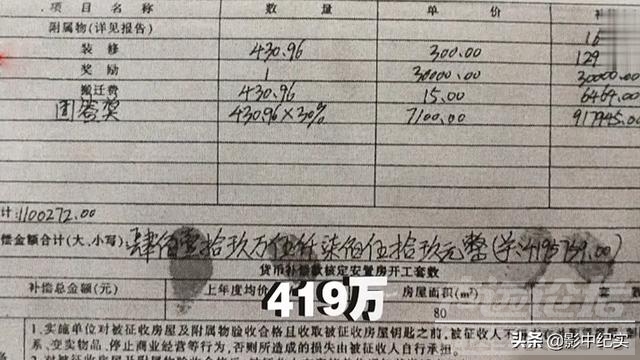 项目名称 数量 单价 补
附属物(详见报告) 16
装修 430.96 300.00 129
奖励 1 30000.00 30000.00
搬迁费 430.96 15.00 6464.00
团签奖 430.96×30% 7100.00 917945.00
计:1100272.00
偿金额合计(大、小写) 肆佰壹拾玖万伍仟柒佰伍拾玖元整(字:4195759.00)
货币补偿款核定安置房开工套数
补偿总金额(元) 上年度均价 房屋面积(m²) 套
80
419万
1.实施单位对被征收房屋及附属物验收合格且收取被征收房屋钥匙之前,被征收人不
系、变实物品、停止商业经营等行为,否则所造成的损失由被征收人自行承担。
头条 @影中纪实